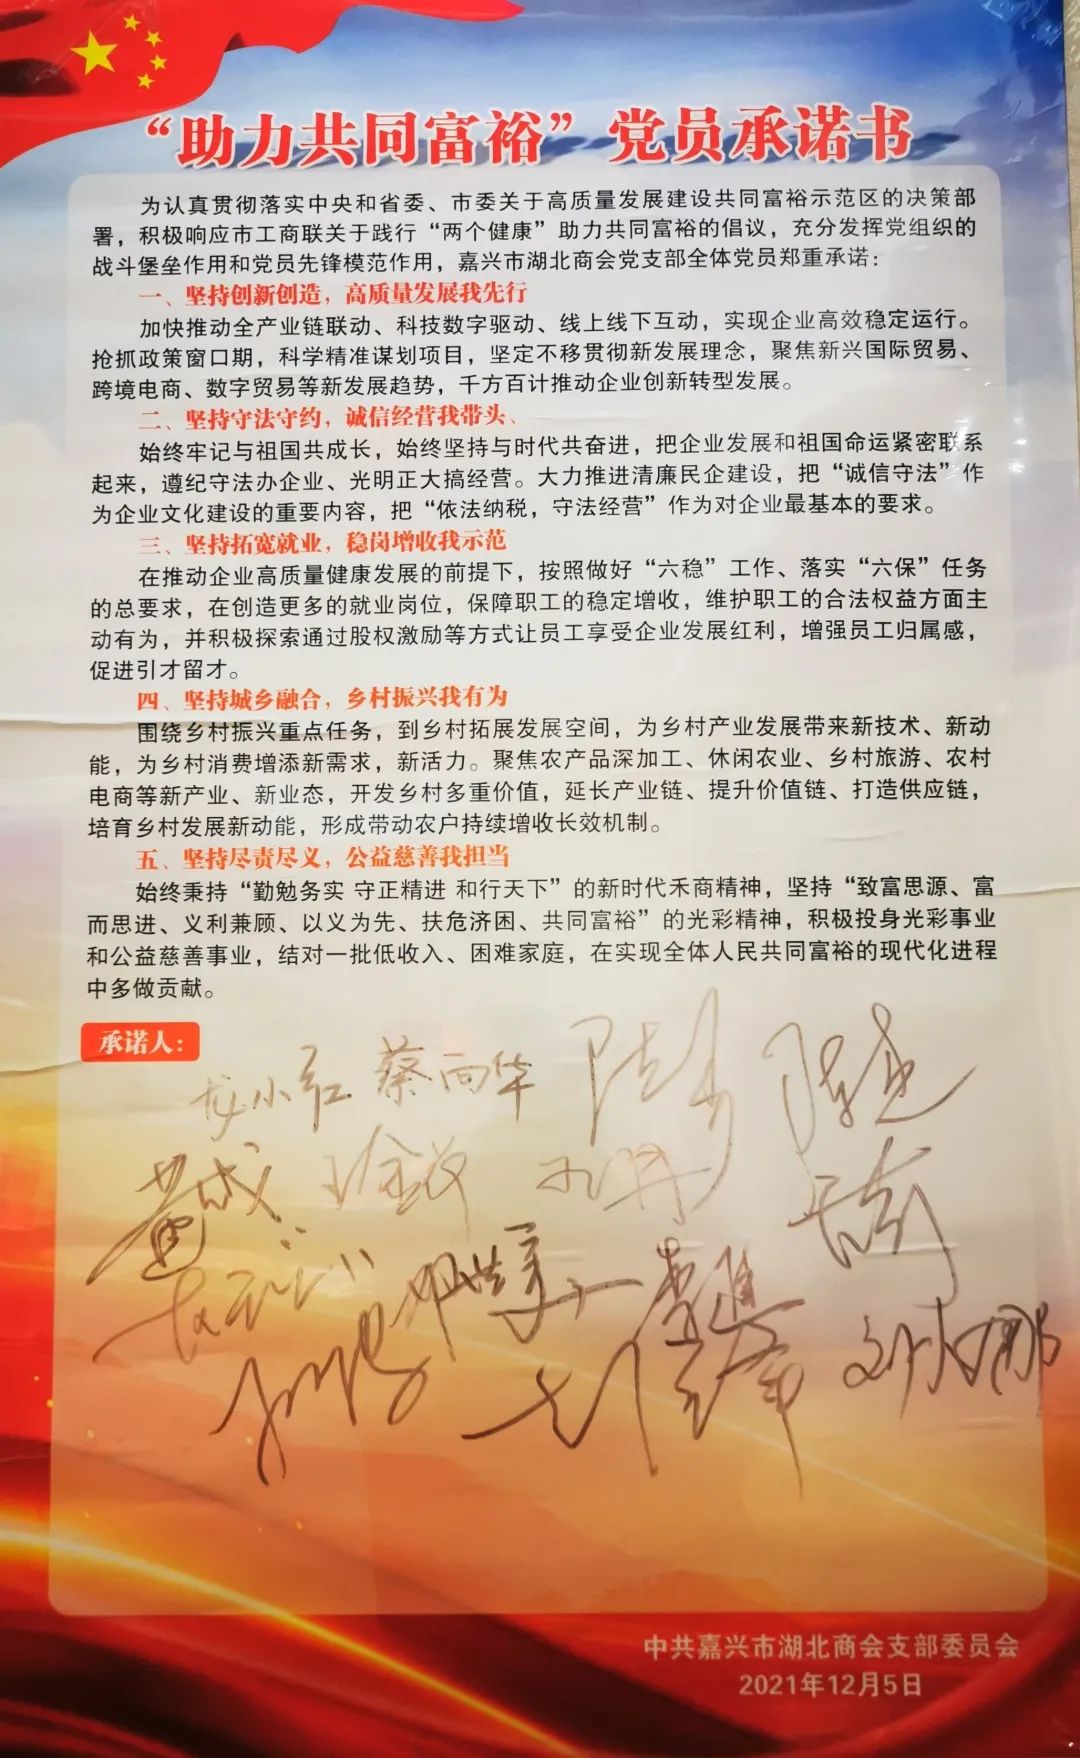 “助力共同富裕”党员承诺书
为认真贯彻落实中央和省委、市委关于高质量发展建设共同富裕示范区的决策部
署，积极响应市工商联关于践行“两个健康”助力共同富裕的倡议，充分发挥党组织的
战斗堡垒作用和党员先锋模范作用，嘉兴市湖北商会党支部全体党员郑重承诺：
一、坚持创新创造，高质量发展我先行
加快推动全产业链联动、科技数字驱动、线上线下互动，实现企业高效稳定运行。
抢抓政策窗口期，科学精准谋划项目，坚定不移贯彻新发展理念，聚焦新兴国际贸易、
跨境电商、数字贸易等新发展趋势，千方百计推动企业创新转型发展。
二、坚持守法守约，诚信经营我带头、
始终牢记与祖国共成长，始终坚持与时代共奋进，把企业发展和祖国命运紧密联系
起来，遵纪守法办企业、光明正大搞经营。大力推进清廉民企建设，把“诚信守法”作
为企业文化建设的重要内容，把“依法纳税，守法经营”作为对企业最基本的要求。
三、坚持拓宽就业，稳岗增收我示范
在推动企业高质量健康发展的前提下，按照做好“六稳”工作、落实“六保”任务
的总要求，在创造更多的就业岗位，保障职工的稳定增收，维护职工的合法权益方面主
动有为，并积极探索通过股权激励等方式让员工享受企业发展红利，增强员工归属感，
促进引才留才。
四、坚持城乡融合，乡村振兴我有为
围绕乡村振兴重点任务，到乡村拓展发展空间，为乡村产业发展带来新技术、新动
能，为乡村消费增添新需求，新活力。聚焦农产品深加工、休闲农业、乡村旅游、农村
电商等新产业、新业态，开发乡村多重价值，延长产业链、提升价值链、打造供应链，
培育乡村发展新动能，形成带动农户持续增收长效机制。
五、坚持尽责尽义，公益慈善我担当
始终秉持“勤勉务实 守正精进 和行天下”的新时代禾商精神，坚持“致富思源、富
而思进、义利兼顾、以义为先、扶危济困、共同富裕”的光彩精神，积极投身光彩事业
和公益慈善事业，结对一批低收入、困难家庭，在实现全体人民共同富裕的现代化进程
中多做贡献。
承诺人：
龙小红 蔡向华
中共嘉兴市湖北商会支部委员会
2021年12月5日